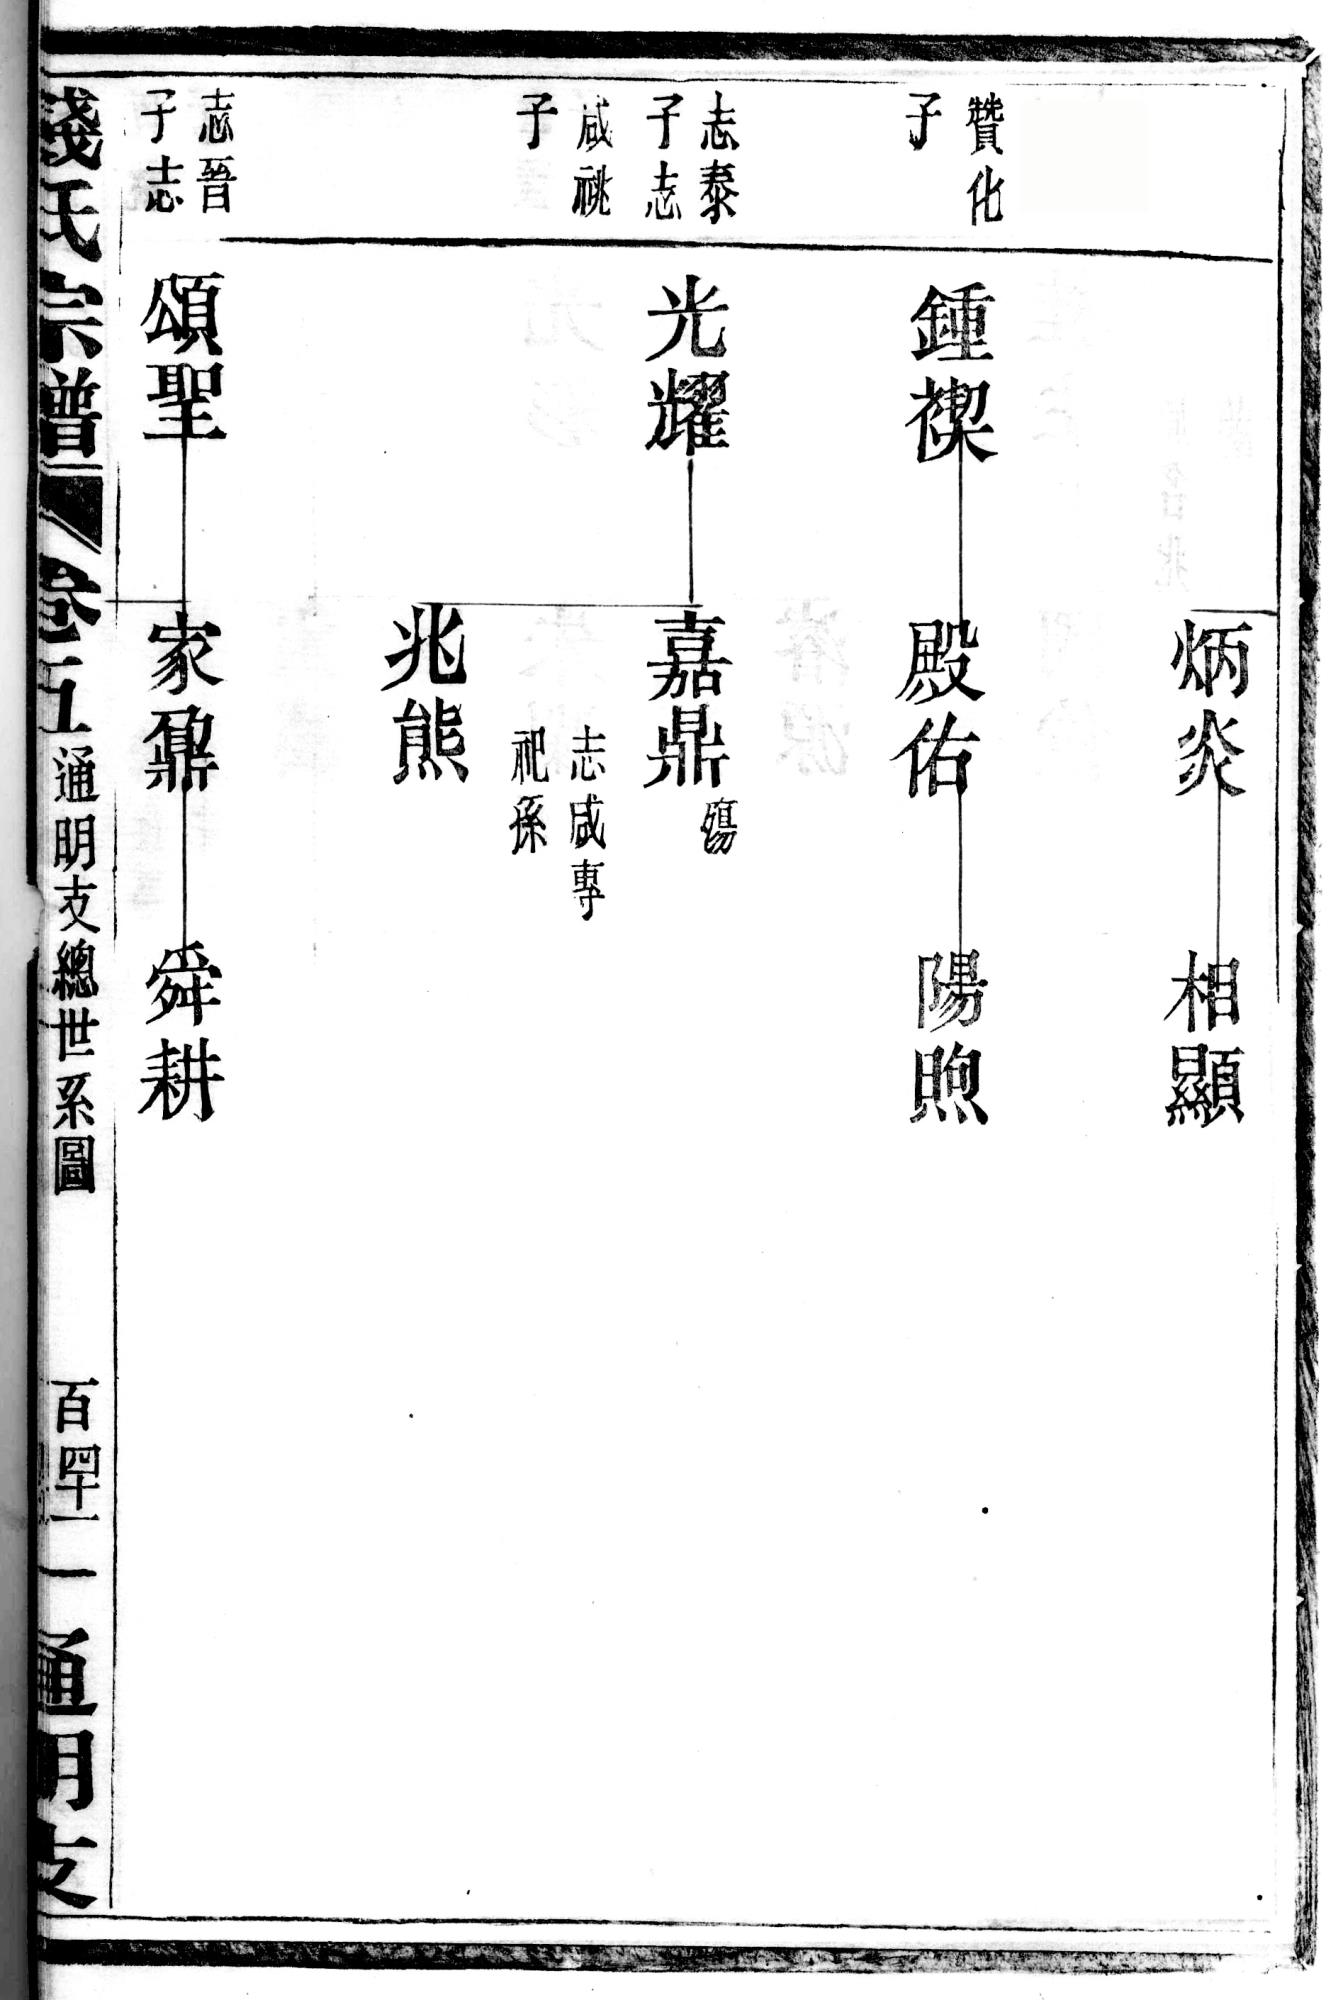 炳炎
相顯
贊化
子
鍾禊
殿佑
陽煦
志泰
子志
咸祧
子
光耀
嘉鼎
殤
志咸專
祀孫
兆熊
志晉
子志
頌聖
家鼐
舜耕
錢氏宗譜
卷五
通明支總世系圖
百四十一
通明支